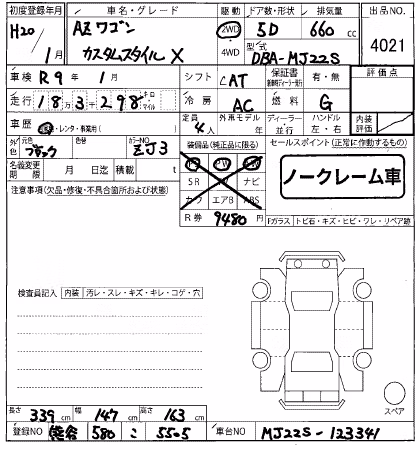 初度登録年月 車名・グレード 駆動 ドア数・形状 排気量 出品NO.
H20/1月 AZワゴン カスタムスタイル X 2WD 4WD 5D 660cc 4021
型式 DBA-MJ22S
車検 R9年 1月 シフト CAT 保証書 有・無 評価点
走行 18万3千298 キロ マイル 冷房 AC 燃料 G
車歴 ・レンタ・事業用( ) 定員 4人 外車モデル 年 ディーラー 並行 ハンドル 左・右 内装評価
外色 元色 ブラック 色替 カラーNO ZJ3 装備品(純正品に限る) セールスポイント(正常に作動するもの)
名義変更期限 月 日迄 積載 t PS PW SR ナビ カワ エアB ABS
ノークレーム車
注意事項(欠品・修復・不具合箇所および状態)
R券 9480円
Fガラス・トビ石・キズ・ヒビ・ワレ・リペア跡
検査員記入 内装 汚レ・スレ・キズ・キレ・コゲ・穴
スペア
長さ 339cm 幅 147cm 高さ 163cm
登録NO 熊谷 580 こ 5505 車台NO MJ22S-123341